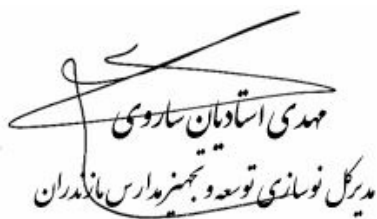 مهدی استادیان ساروی
مدیرکل نوسازی توسعه و تجهیز مدارس مازندران